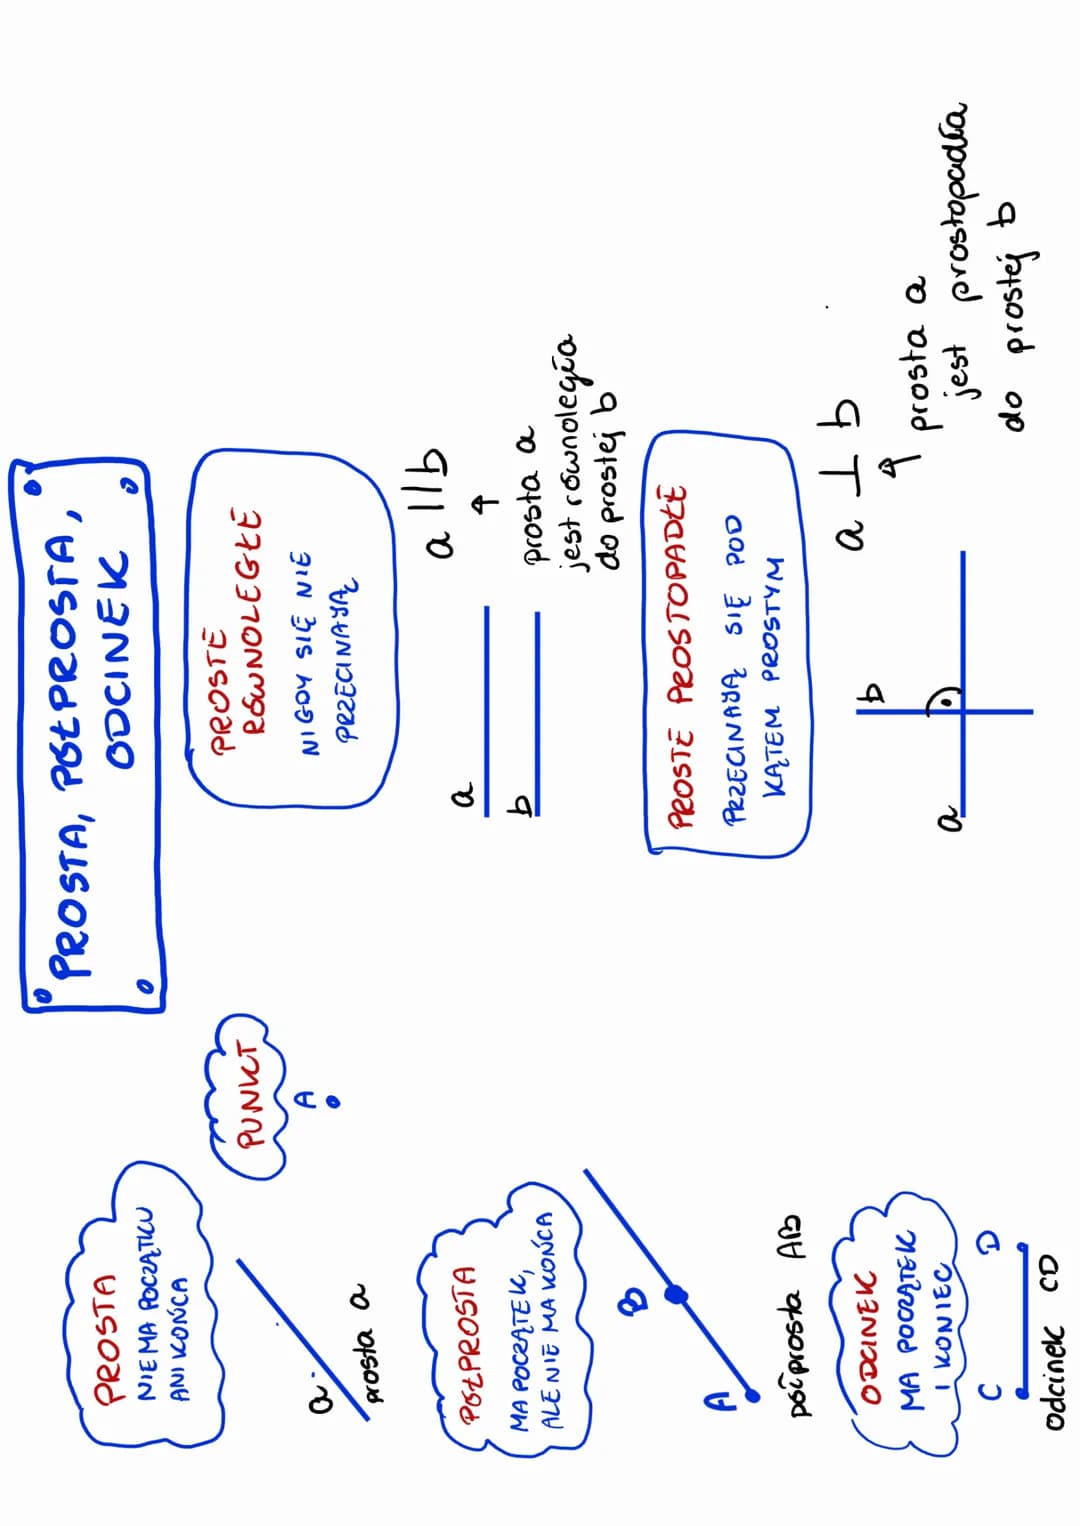 PROSTA, PÓŁPROSTA,
ODCINEK
PROSTA
NIE MA POCZĄTKU
ANI KOŃCA
a
prosta a
PUNKT
A
PÓŁPROSTA
MA POCZĄTEK,
ALE NIE MA KOŃCA
A
B
półprosta AB
ODCINEK
MA POCZĄTEK
I KONIEC
C
D
odcinek CD
PROSTE
RÓWNOLEGŁE
NIGDY SIĘ NIE
PRZECINAJĄ
a
b
a || b
prosta a
jest równoległa
do prostej b
PROSTE PROSTOPADŁE
PRZECINAJĄ SIĘ POD
KĄTEM PROSTYM
b
a
a ⊥ b
prosta a
jest prostopadła
do prostej b